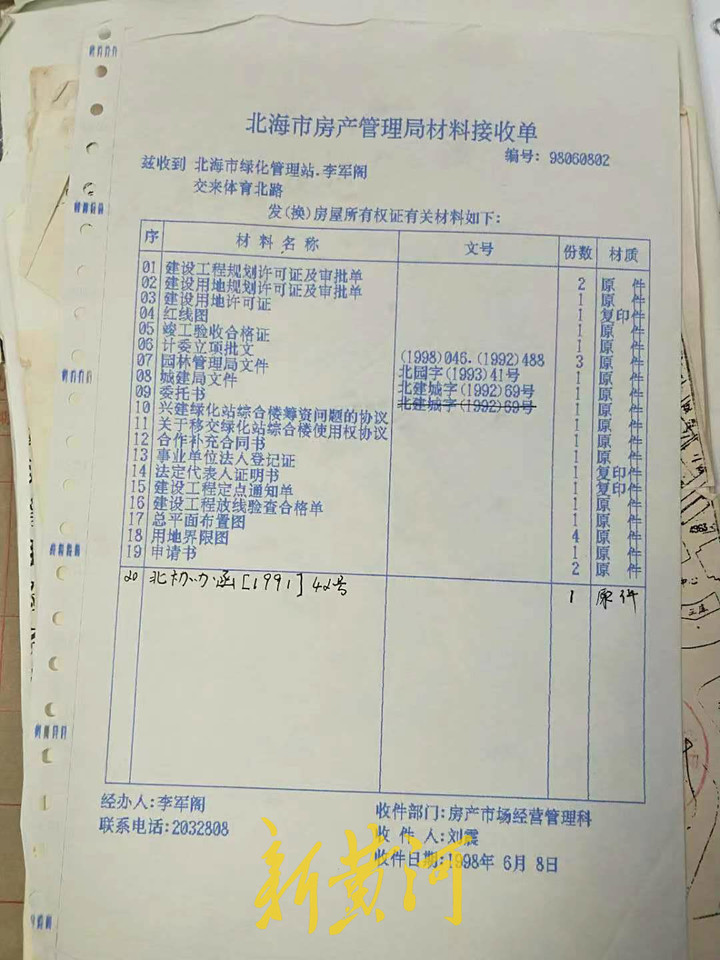 北海市房产管理局材料接收单
编号: 98060802
兹收到 北海市绿化管理站.李军阁
交来体育北路
发(换)房屋所有权证有关材料如下:
序 材料名称 文号 份数 材质
01 建设工程规划许可证及审批单 2 原件
02 建设用地规划许可证及审批单 1 原件
03 建设用地许可证 1 复印件
04 红线图 1 原件
05 竣工验收合格证 1 原件
06 计委立项批文 (1998)046.(1992)488 3 原件
07 园林管理局文件 北园字(1993)41号 1 原件
08 城建局文件 北建城字(1992)69号 1 原件
09 委托书 北建城字(1992)69号 1 原件
10 兴建绿化站综合楼筹资问题的协议 1 原件
11 关于移交绿化站综合楼使用权协议 1 原件
12 合作补充合同书 1 原件
13 事业单位法人登记证 1 复印件
14 法定代表人证明书 1 复印件
15 建设工程定点通知单 1 原件
16 建设工程放线验查合格单 1 原件
17 总平面布置图 4 原件
18 用地界限图 1 原件
19 申请书 2 原件
20 北办函[1991]42号 1 原件
经办人:李军阁
联系电话:2032808
收件部门:房产市场经营管理科
收 件 人:刘震
收件日期:1998年 6月 8日
新黄河